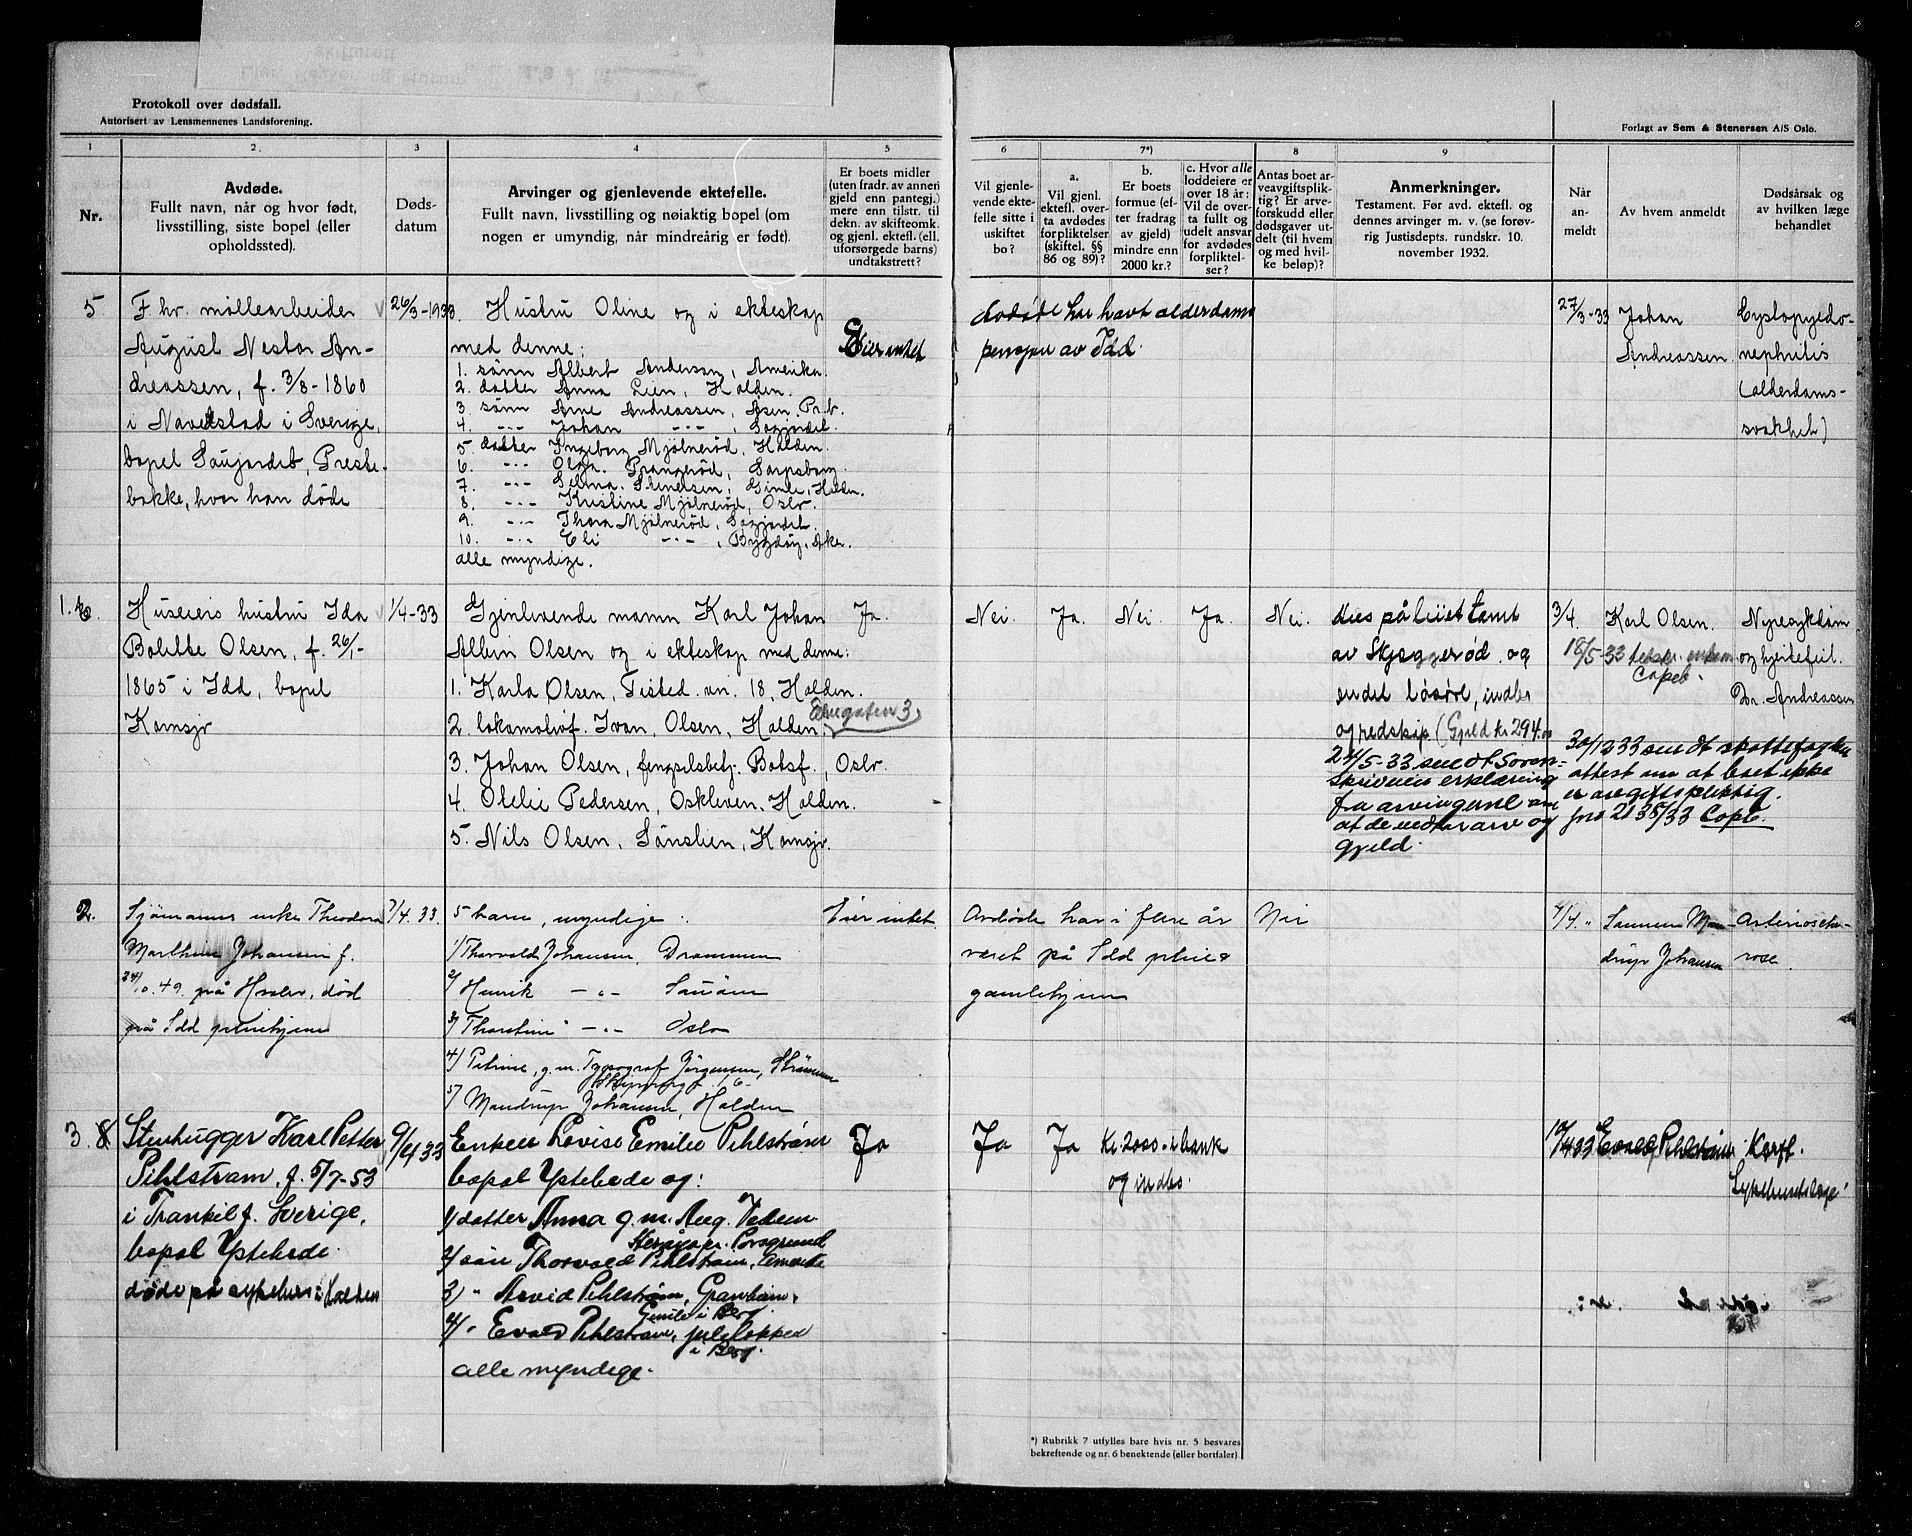 Protokoll over dødsfall.
Autorisert av Lensmennenes Landsforening.
Forlagt av Sem & Stenersen A/S Oslo.
1
2.
3
4
5
6
7*)
8
9
Nr.
Avdøde.
Fullt navn, når og hvor født,
livsstilling, siste bopel (eller
opholdssted).
Døds-
datum
Arvinger og gjenlevende ektefelle.
Fullt navn, livsstilling og nøiaktig bopel (om
nogen er umyndig, når mindreårig er født).
Er boets midler
(uten fradr. av annen
gjeld enn pantegj.)
mere enn tilstr. til
dekn. av skifteomk.
og gjenl. ektefl. (ell.
uforsørgede barns)
undtakstrett?
Vil gjenle-
vende ekte-
felle sitte i
uskiftet
bo?
a.
Vil gjenl.
ektefl. over-
ta avdødes
forpliktelser
(skiftel. §§
86 og 89)?
b.
Er boets
formue (ef-
ter fradrag
av gjeld)
mindre enn
2000 kr.?
c. Hvor alle
loddeiere er
over 18 år:
Vil de over-
ta fullt og
udelt ansvar
for avdødes
forpliktel-
ser?
Antas boet ar-
veavgiftsplik-
tig? Er arve-
forskudd eller
dødsgaver ut-
delt (til hvem
og med hvil-
ke beløp)?
Anmerkninger.
Testament. Før avd. ektefl. og
dennes arvinger m. v. (se forøv-
rig Justisdepts. rundskr. 10.
november 1932.
Når
an-
meldt
Av hvem anmeldt
Dødsårsak og
av hvilken læge
behandlet
5
Fhv. møllearbeider
August Nestor An-
dreassen, f. 3/8-1860
i Navestad i Sverige,
bopel Saujordet, Preste-
bakke, hvor han døde
26/3-1933.
Hustru Oline og i ekteskap
med denne:
1. sønn Albert Anderson, Amerika.
2. datter Anna Lien, Halden.
3 sønn Arne Andreassen, Asen. Prb.
4. -"- Johan -"-
5 datter Ingeborg Mjølnerød, Halden.
6. -"- Olga Prangerød, Sarpsborg.
7. -"- Selma Stenersen, Gimle, Halden.
8. -"- Kristine Mjølnerød, Oslo.
9. -"- Thora Mjølnerød,
10. -"- Eli -"-, Bygdøy, Aker.
alle myndige.
Eier intet
Avdøde har havt alderdoms
pensjon av Idd.
27/3-33
Johan
Andreassen
Cystopyelo-
nephritis
(alderdoms-
svakhet)
1. 6.
Huseiers hustru Ida
Bolette Olsen, f. 26/1-
1865 i Idd, bopel
Kornsjø
1/4-33
Gjenlevende mann Karl Johan
Albin Olsen og i ekteskap med denne:
1. Karla Olsen, Tisted. vn. 18, Halden.
2. lokomotivf. Ivan Olsen, Halden.
3. Johan Olsen, fengselsbetj. Botsf., Oslo.
4. Olelie Pedersen, Oskleven, Halden.
5. Nils Olsen, Sånslien, Kornsjø.
Ja.
Nei.
Ja.
Nei.
Ja.
Nei.
Hus på leiet tomt
av Skjeggerød og
endel løsøre, indbo
og redskap (Gjeld kr 294.00
24/5-33 sendt Soren-
skriveren erklæring
fra arvingerne om
at de vedtar arv og
gjeld.
3/4.
Karl Olsen.
18/5-33
30/12 33 sendt skattefogden
attest om at boet ikke
er avgiftspliktig.
jno 2135/33
Nyresykdom
og hjertefeil.
Dr. Andreassen
2.
Sjømanns enke Theodora
Marthine Johansen f.
24/10.49. på Hvaler, død
på Idd pleiehjem
7/4.33.
5 barn, myndige:
1/ Thorvald Johansen, Drammen
2/ Henrik -"-
3/ Thorstein -"- Oslo
4/ Petrine, g.m. Typograf Jørgensen, Strømmen
5/ Mandrup Johansen, Halden
Eier intet.
Avdøde har i flere år
været på Idd pleie &
gamlehjem
Nei
7/4. "
Mandrup Johansen
Arteriosckle-
rose.
3. 8
Stenhugger Karl Petter
Pihlstrøm, f. 5/7-53
i Trankil f. Sverige,
bopel Ystehede.
døde på sykehus i Halden
9/4 33
Enken Lovise Emilie Pihlstrøm
bopel Ystehede og:
1/ datter Anna g.m. Aug. Vedem
Porsgrund
2/ søn Thorvald Pihlstrøm, Amerika
3/ " Arvid Pihlstrøm, Granheim,
i Berg.
4/ " Evald Pihlstrøm,
i Berg.
alle myndige.
Ja
Ja
Ja
Kr. 2000.- i bank
og indbo.
12/4 33
Evald Pihlstrøm
Kreft.
Sykehuslæge
*) Rubrikk 7 utfylles bare hvis nr. 5 besvares
bekreftende og nr. 6 benektende (eller bortfaler)